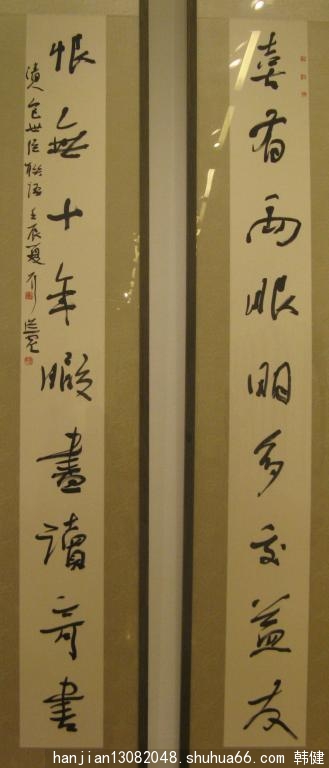 喜有両眼明多交益友
恨無十年暇盡讀奇書
包世臣聯語壬辰夏
hanjian13082048.shuhua66.com 韩健